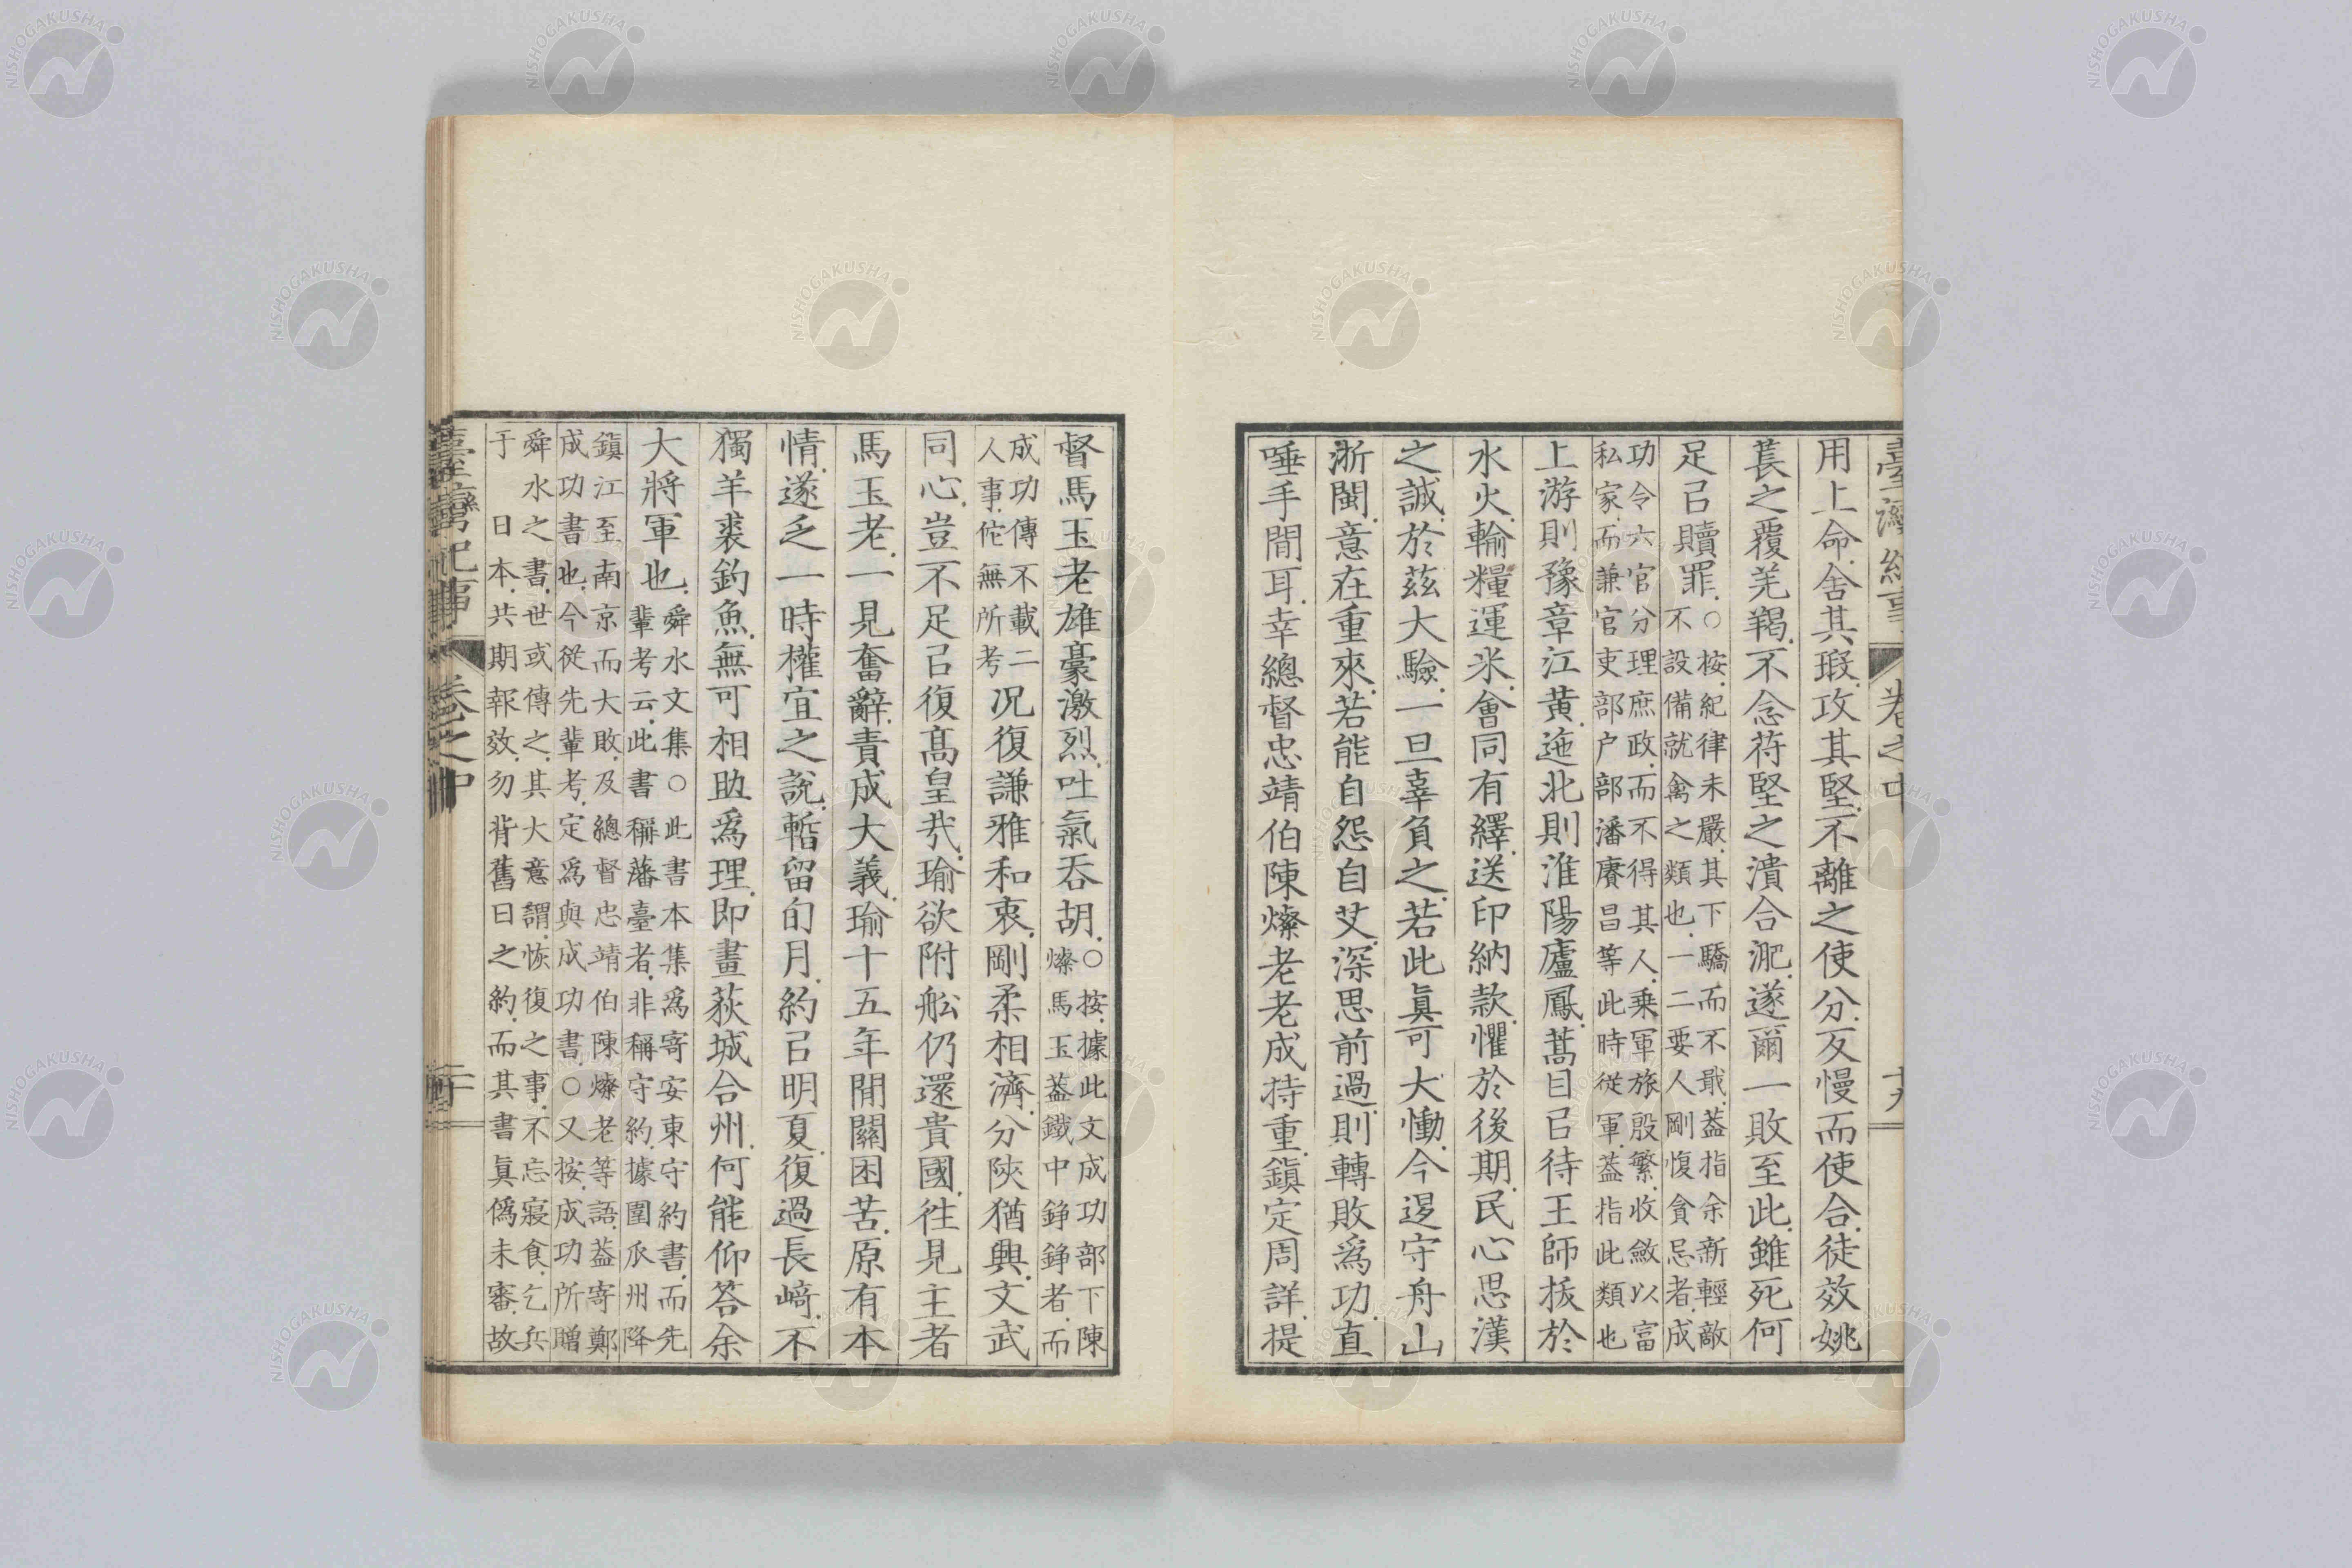 臺灣紀事　卷之中　十九
用上命．舍其瑕．攻其堅．不離之使分．反慢而使合．徒效姚
萇之覆羌羯．不念苻堅之潰合淝．遂爾一敗至此．雖死何
足㠯贖罪．○按．紀律未嚴．其下驕而不戢．蓋指余新輕敵
不設備就禽之類也．一二要人剛愎貪忌者．成
功令六官分理庶政．而不得其人．乘軍旅殷繁．收斂以富
私家．而兼官吏部户部潘賡昌等此時從軍．蓋指此類也
上游則豫章江黃．迤北則淮陽廬鳳．蒿目㠯待王師拔於
水火．輸糧運米．會同有繹．送印納款．懼於後期．民心思漢
之誠．於茲大驗．一旦辜負之．若此眞可大慟．今退守舟山
浙閩．意在重來．若能自怨自艾．深思前過．則轉敗爲功．直
唾手間耳．幸總督忠靖伯陳燦老老成持重．鎭定周詳．提
督馬玉老雄豪激烈．吐氣吞胡．○按．據此文成功部下陳
燦馬玉蓋鐵中錚錚者．而
成功傳不載二
人事．佗無所考
況復謙雅和衷．剛柔相濟．分陝猶興．文武
同心．豈不足㠯復高皇哉．瑜欲附舩仍還貴國．徃見主者
馬玉老．一見奮辭．責成大義．瑜十五年間關困苦．原有本
情．遂乏一時權宜之說．暫留旬月．約㠯明夏．復過長﨑．不
獨羊裘釣魚．無可相助爲理．即晝荻城合州．何能仰答余
大將軍也．舜水文集○此書本集爲寄安東守約書．而先
輩考云．此書稱藩臺者．非稱守約．據圍瓜州降
鎭江至南京而大敗．及總督忠靖伯陳燦老等語．蓋寄鄭
成功書也．今從先輩考．定爲與成功書．○又按．成功所贈
舜水之書．世或傳之．其大意謂．恢復之事．不忘寢食．乞兵
于　日本．共期報效．勿背舊日之約．而其書眞僞未審．故
臺灣紀事　卷之中　二十